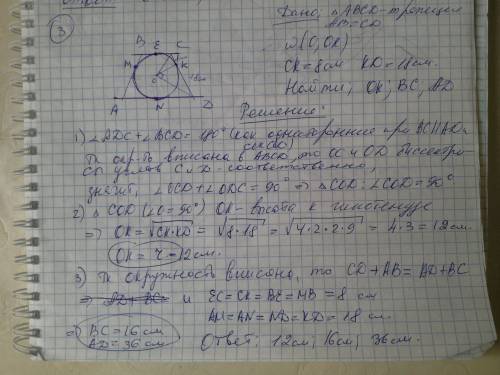 3
Дано: ABCD-трапеция
AB=CD
ω(O, OK)
CK=8см KD=18см.
Найти: OK; BC, AD
B E C
M K
O 18см
A N D
Решение:
1) ∠ADC+∠BCD=180° (как односторонние при BC||AD и
сек. CD)
Тк окр-ть вписана в ABCD, то CO и OD биссектри-
сы углов C и D соответственно,
значит, ∠OCD+∠ODC=90° ⇒ △COD: ∠COD=90°
2) △COD (∠O=90°) OK-высота к гипотенузе
⇒ OK=√CK·KD = √8·18 = √4·2·2·9 = 4·3=12см.
OK=r=12см.
3) Тк окружность вписана, то CD+AB=AD+BC
⇒ AD+BC и EC=CK=BE=MB=8 см
AM=AN=ND=KD=18 см.
⇒ BC=16см
AD=36см
Ответ: 12см; 16см; 36см.